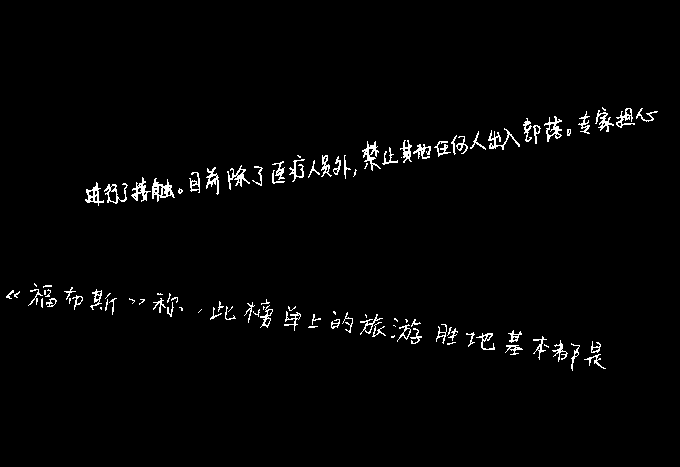 进行了接触。目前除了医疗人员外，禁止其他任何人出入部落。专家担心
《福布斯》称，此榜单上的旅游胜地基本都是